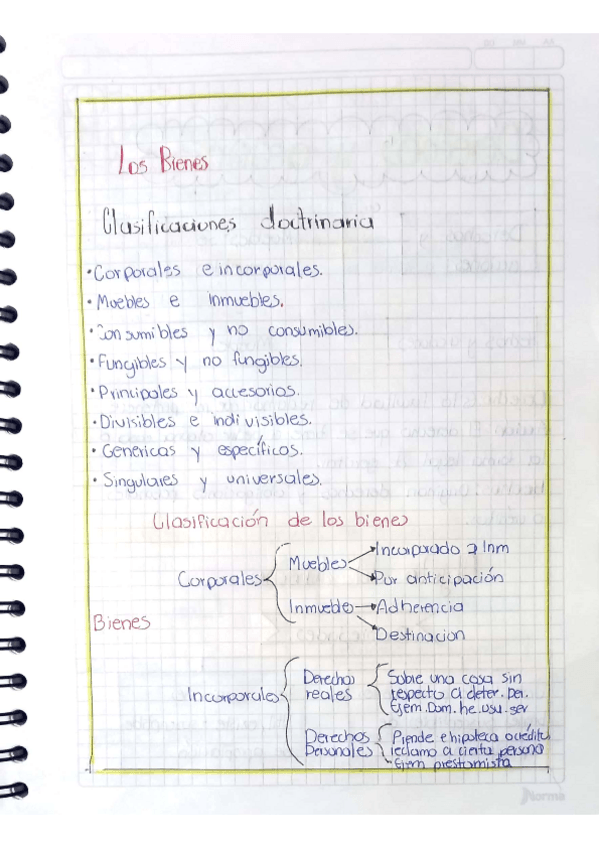 Los Bienes
Clasificaciones doctrinaria
• Corporales e incorporales.
• Muebles e Inmuebles.
• Consumibles y no consumibles.
• Fungibles y no fungibles.
• Principales y accesorios.
• Divisibles e indivisibles.
• Genericas y específicos.
• Singulares y universales.
Clasificación de los bienes
Bienes
Corporales
Muebles
Incorporado a Inm
Por anticipación
Inmueble
Adherencia
Destinacion
Incorporales
Derechos
reales
Sobre una cosa sin
respecto a deter. per.
Ejem. Dom. he. usu. ser
Derechos
Personales
e hipoteca o crédito
reclamo a cierta persona
Ejem prestamista
Norma